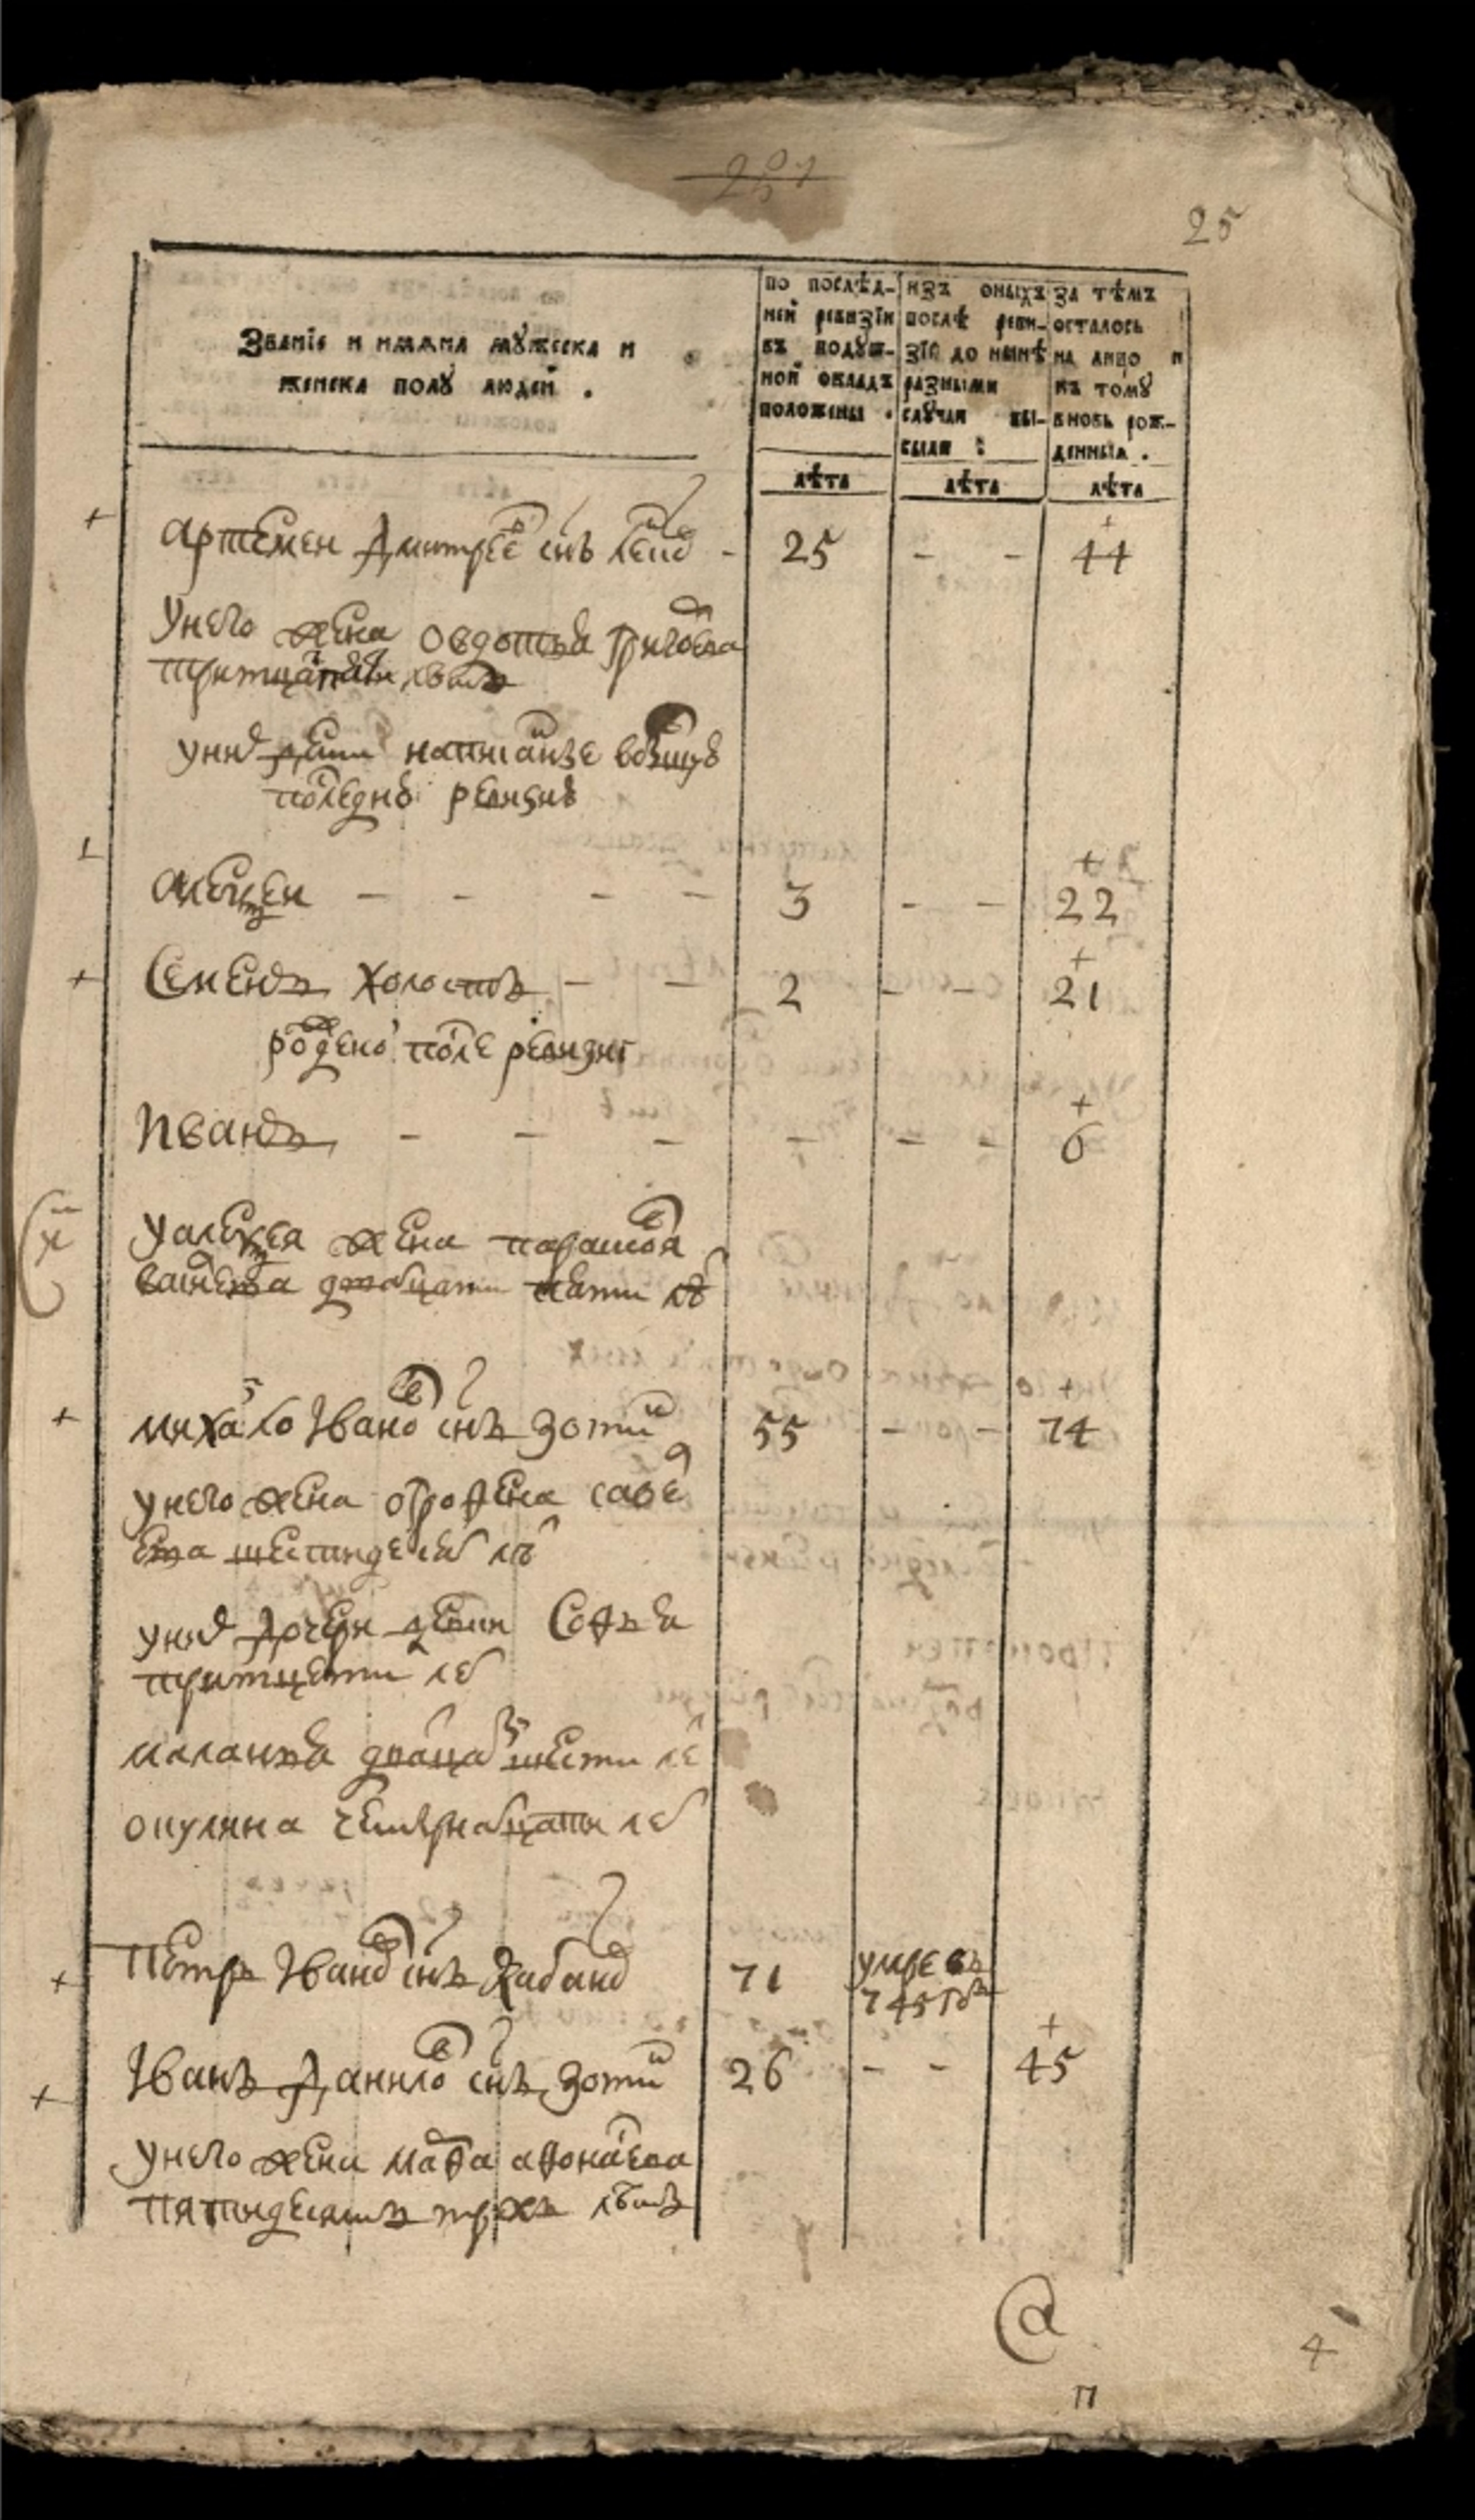 25
Званїе и имѧна мꙋжеска и
женска полꙋ людей .
по послѣд-
ней ревизїи
въ подꙋш-
ной окладъ
положены .
изъ оныхъ
послѣ реви-
зїи до нынѣ
разными
слꙋчаи вы-
были :
за тѣмъ
осталось
на лицо и
къ томꙋ
вновь рож-
денныхъ .
лѣта лѣта лѣта
Артемеи Дмитрее снъ 25 - - 44
Унего жена Овдотья Григоева
уних дети написаныхе
последне ревизие
Алексеи - - - - 3 - - 22
Семенъ холостъ - - 2 - - 21
рождено после ревизиі
Иванъ - - - - - - 6
Уалексея жена парасковя
двацати пяти лѣ
михаило Ивано снъ Зоти 55 - - 74
унего жена Ографена савѣ
ева шестидесят лѣ
уних дочери девки Софья
маланья дватцат шести ле
окулина четырнатцати ле
Петръ Ивано снъ Кабано 71 умре въ
745 гдѣ
Іванъ Данило снъ Зоти 26 - - 45
унего жена Марфа афонасева
пятидесятъ трехъ лѣтъ
4
п